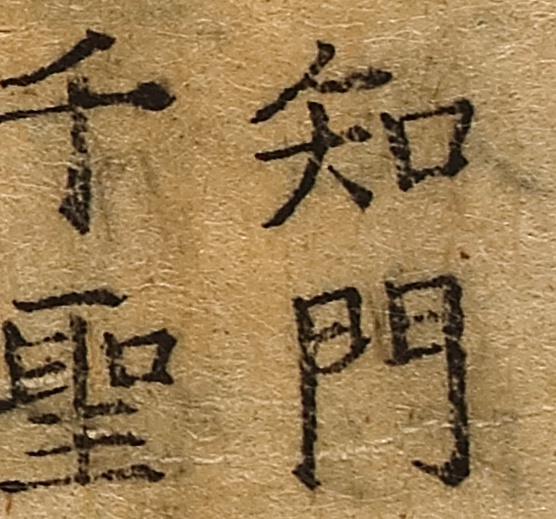 知門
千聖